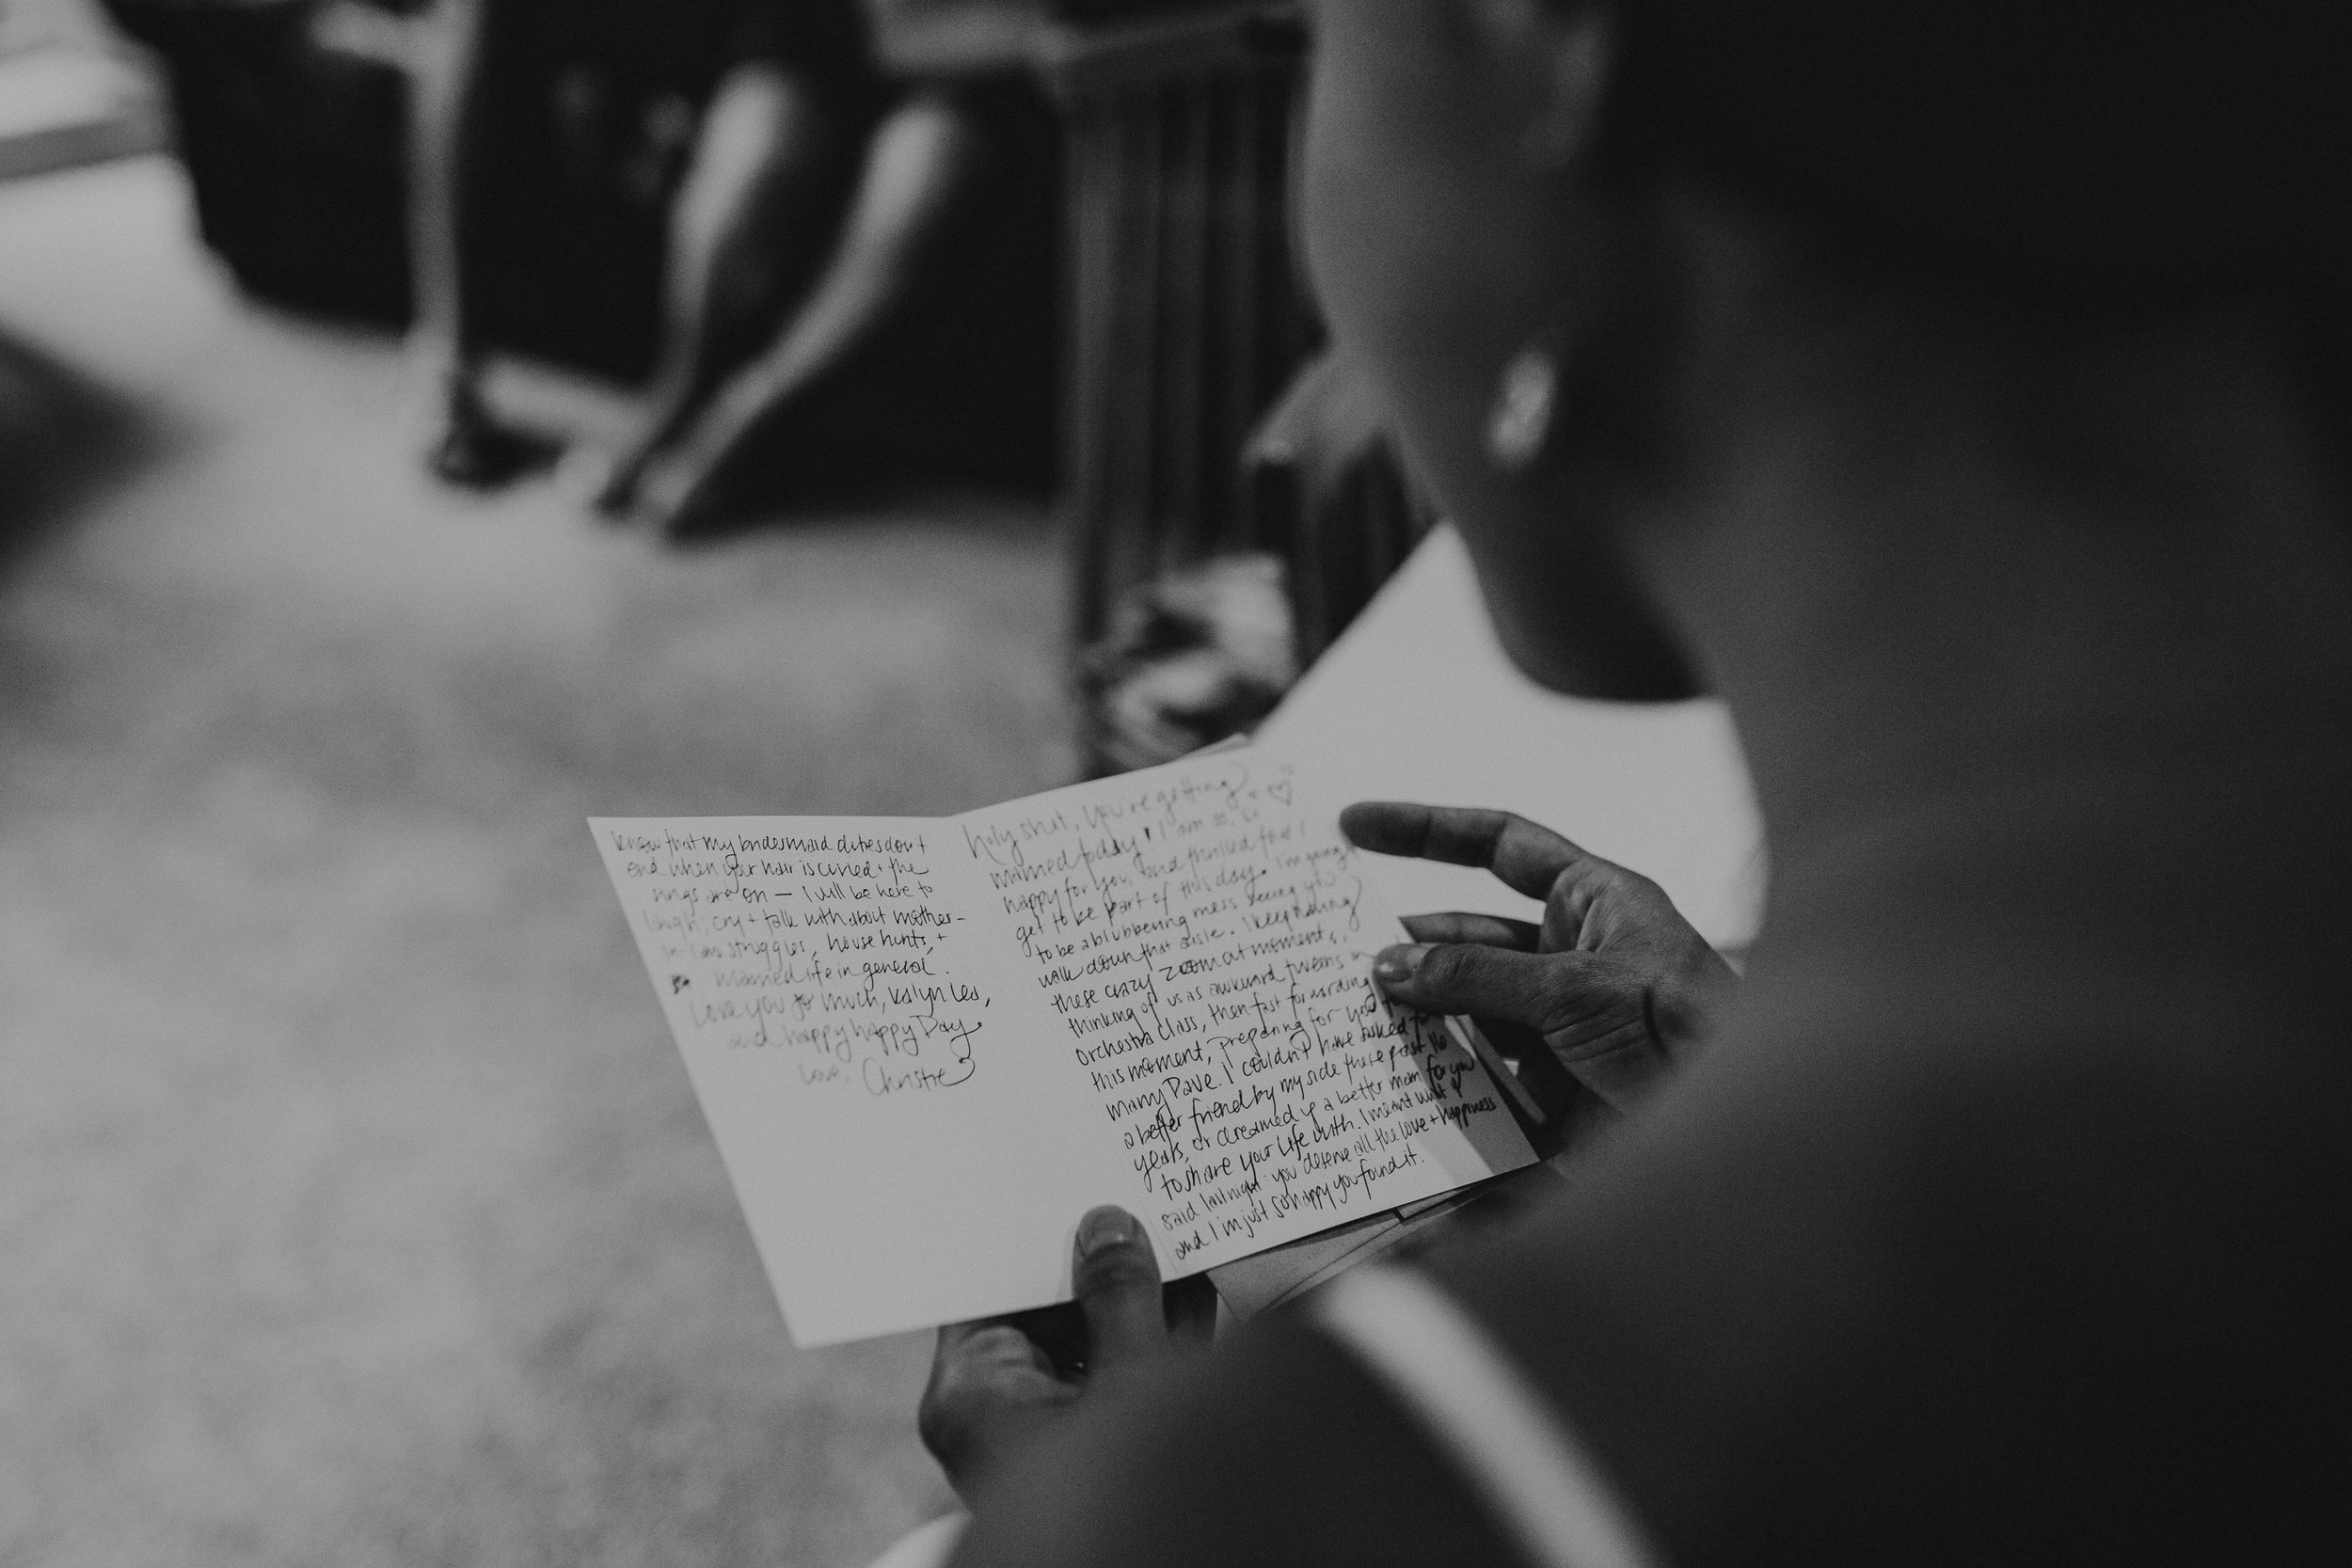 holy shit, you're getting
married today! I am so, so
happy for you, and thrilled that I
get to be part of this day. I'm going
to be a blubbering mess seeing you
walk down that aisle. I keep having
these crazy zoom out moments,
thinking of us as awkward tweens in
orchestra class, then fast forwarding
this moment, preparing for you to
marry Dave. I couldn't have asked for
a better friend by my side these past 16
years, or dreamed of a better man for you
to share your life with. I meant what I
said last night: you deserve all the love + happiness
and I'm just so happy you found it.
know that my bridesmaid duties don't
end when your hair is curled + the
rings are on — I will be here to
laugh, cry + talk with about mother-
in-law struggles, house hunts, +
married life in general.
Love you so much, Kalyn Lea,
and happy happy Day
Love, Christie